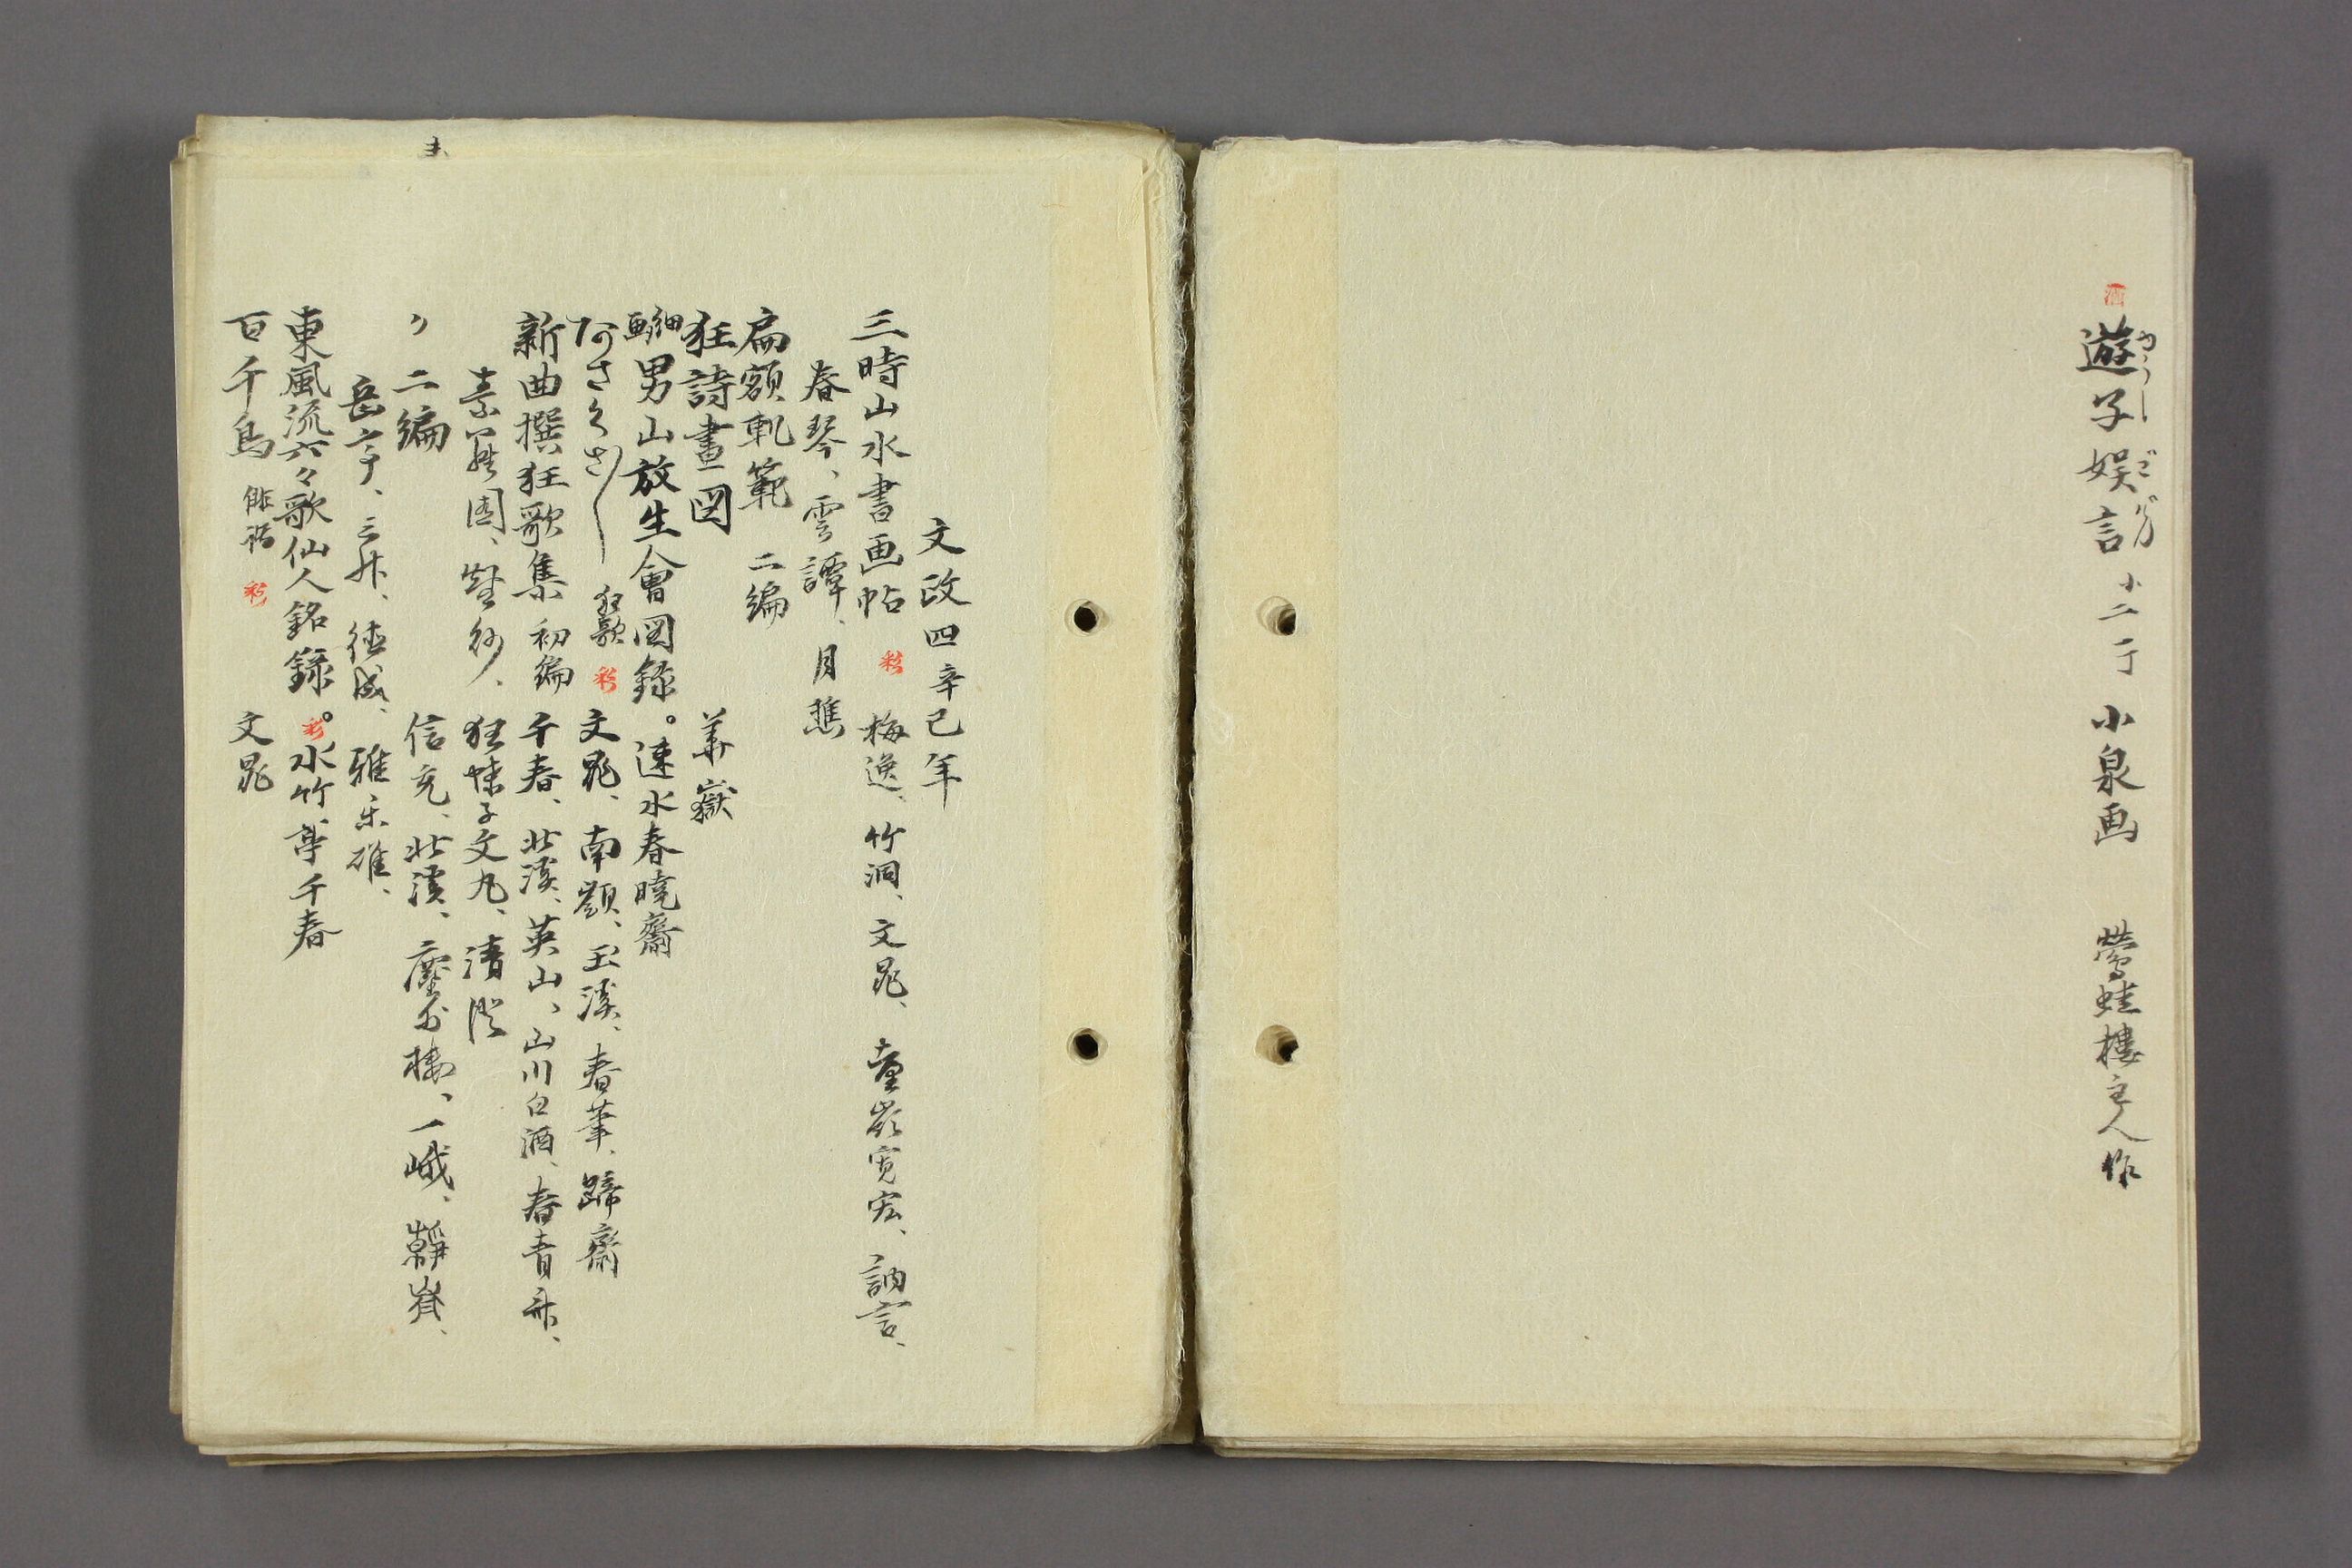 遊子娯言 小二丁 小泉画 鶯蛙樓主人作
文政四辛巳年
三時山水書画帖 彩 梅逸、竹洞、文晁、寛宏、訥言、
春琴、雲譚、月樵
扁額軌範 二編
狂詩畫図 華嶽
男山放生會図録。速水春曉齋
あさくさ 狂歌 彩 文晁、南嶺、玉溪、春華、蹄齋
新曲撰狂歌集 初編 千春、北溪、英山、山川白酒、
素羅園、狂蝶子文丸、清澄
〃 二編 信充、北溪、塵外楼、一峨、靜
岳亭、雅
東風流六々歌仙人銘録。彩 水竹亭千春
百千鳥 俳諧 彩 文晁